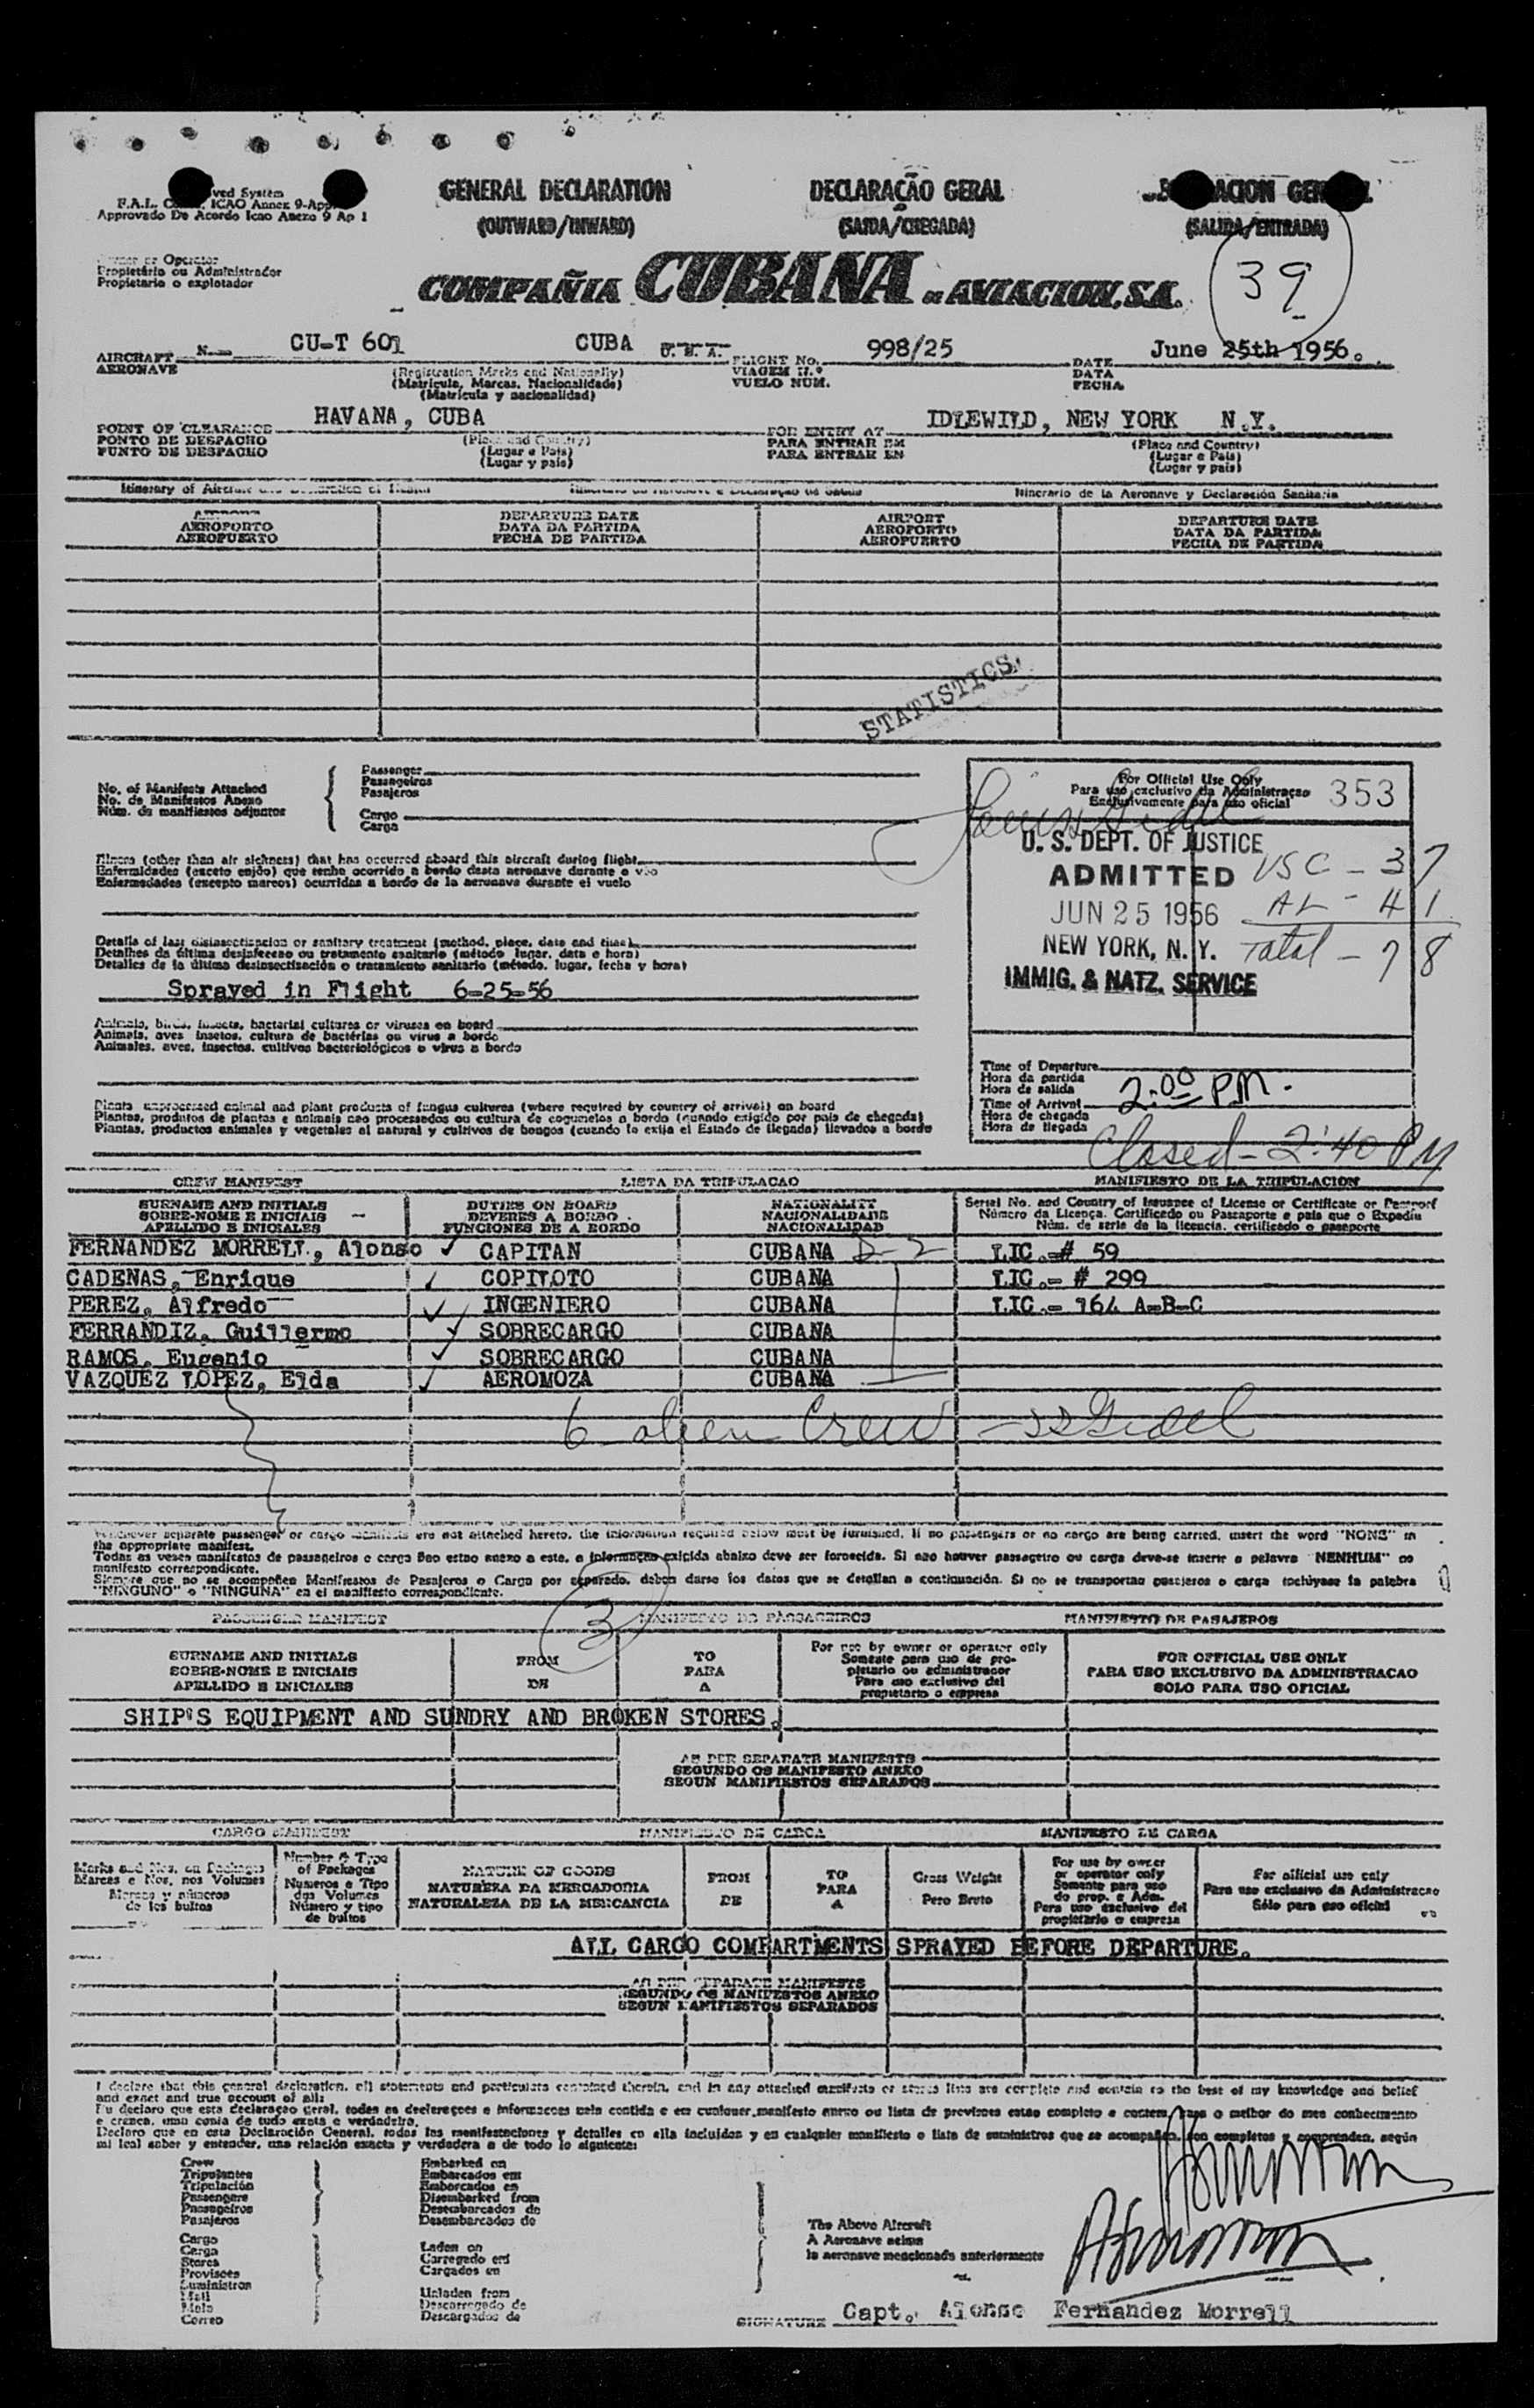 ved System
F.A.L. ICAO Annex 9-App
Approvado De Acordo Icao Anexo 9 Ap 1
GENERAL DECLARATION
(OUTWARD/INWARD)
DECLARAÇÃO GERAL
(SAIDA/CHEGADA)
ACION GEN
(SALIDA/ENTRADA)
39
or Operator
Propietário ou Administrador
Propietario o explotador
COMPAÑIA CUBANA DE AVIACION, S.A.
AIRCRAFT N. CU-T 601 CUBA U. S. A. FLIGHT No. 998/25 DATE June 25th 1956.
AERONAVE (Registration Marks and Nationality) VIAGEM N.º DATA
(Matricula, Marcas, Nacionalidade) VUELO NUM. FECHA
(Matricula y nacionalidad)
POINT OF CLEARANCE HAVANA, CUBA FOR ENTRY AT IDLEWILD, NEW YORK N.Y.
PONTO DE DESPACHO (Place and Country) PARA ENTRAR EM (Place and Country)
PUNTO DE DESPACHO (Lugar e Pais) PARA ENTRAR EN (Lugar e Pais)
(Lugar y pais) (Lugar y pais)
Itinerary of Aircraft and Declaration of Health Itinerario de la Aeronave y Declaración Sanitaria
AIRPORT DEPARTURE DATE AIRPORT DEPARTURE DATE
AEROPORTO DATA DA PARTIDA AEROPORTO DATA DA PARTIDA
AEROPUERTO FECHA DE PARTIDA AEROPUERTO FECHA DE PARTIDA
STATISTICS
No. of Manifests Attached
No. de Manifestos Anexo
Núm. de manifiestos adjuntos
Passenger
Passageiros
Pasajeros
Cargo
Carga
For Official Use Only
Para uso exclusivo da Administraçao
Exclusivamente para uso oficial
353
U. S. DEPT. OF JUSTICE
ADMITTED
JUN 25 1956
NEW YORK, N. Y.
IMMIG. & NATZ. SERVICE
USC - 37
AL - 41
Total - 78
Illness (other than air sickness) that has occurred aboard this aircraft during flight
Enfermidades (exceto enjôo) que tenha ocorrido a bordo desta aeronave durante o vôo
Enfermedades (excepto mareos) ocurridas a bordo de la aeronave durante el vuelo
Details of last disinsectization or sanitary treatment (method, place, date and time)
Detalhes da última desinfeccao ou tratamento sanitario (método lugar, data e hora)
Detalles de la última desinsectización o tratamiento sanitario (método, lugar, fecha y hora)
Sprayed in Flight 6-25-56
Animals, birds, insects, bacterial cultures or viruses on board
Animais, aves insetos, cultura de bactérias ou virus a bordo
Animales, aves, insectos, cultivos bacteriológicos o virus a bordo
Time of Departure
Hora da partida
Hora de salida
Time of Arrival 2:00 PM.
Hora de chegada
Hora de llegada
Closed - 2:40 PM
Plants, unprocessed animal and plant products of fungus cultures (where required by country of arrival) on board
Plantas, produtos de plantas e animais nao processados ou cultura de cogumelos a bordo (quando exigido por pais de chegada)
Plantas, productos animales y vegetales al natural y cultivos de hongos (cuando lo exija el Estado de llegada) llevados a bordo
CREW MANIFEST LISTA DA TRIPULACAO MANIFIESTO DE LA TRIPULACION
SURNAME AND INITIALS DUTIES ON BOARD NATIONALITY Serial No. and Country of Issuance of License or Certificate or Passport
SOBRE-NOME E INICIAIS DEVERES A BORDO NACIONALIDADE Número da Licença, Certificado ou Passaporte e pais que o Expediu
APELLIDO E INICIALES FUNCIONES DE A BORDO NACIONALIDAD Núm. de serie de la licencia, certificado o pasaporte
FERNANDEZ MORRELL, Alonso CAPITAN CUBANA D-2 LIC.-# 59
CADENAS, Enrique COPILOTO CUBANA LIC.- # 299
PEREZ, Alfredo INGENIERO CUBANA LIC.- 164 A-B-C
FERRANDIZ, Guillermo SOBRECARGO CUBANA
RAMOS, Eugenio SOBRECARGO CUBANA
VAZQUEZ LOPEZ, Elda AEROMOZA CUBANA
6 alien Crew
Whenever separate passenger or cargo manifests are not attached hereto, the information required below must be furnished. If no passengers or no cargo are being carried, insert the word "NONE" in
the appropriate manifest.
Todas as vezes manifestos de passageiros e carga nao estao anexo a este, a informaçao exigida abaixo deve ser fornecida. Si nao houver passageiro ou carga deve-se inserir a palavra "NENHUM" no
manifesto correspondiente.
Siempre que no se acompañen Manifiestos de Pasajeros o Carga por separado, deben darse los datos que se detallan a continuación. Si no se transportan pasajeros o carga inclúyase la palabra
"NINGUNO" o "NINGUNA" en el manifiesto correspondiente.
3
PASSENGER MANIFEST MANIFESTO DE PASSAGEIROS MANIFIESTO DE PASAJEROS
SURNAME AND INITIALS FROM TO For use by owner or operator only FOR OFFICIAL USE ONLY
SOBRE-NOME E INICIAIS DE PARA Somente para uso de propietario ou administrador PARA USO EXCLUSIVO DA ADMINISTRACAO
APELLIDO E INICIALES A Para uso exclusivo del propietario o empresa SOLO PARA USO OFICIAL
SHIP'S EQUIPMENT AND SUNDRY AND BROKEN STORES.
AS PER SEPARATE MANIFESTS
SEGUNDO OS MANIFESTO ANEXO
SEGUN MANIFIESTOS SEPARADOS
CARGO MANIFEST MANIFIESTO DE CARGA MANIFESTO DE CARGA
Marks and Nos. on Packages
Marcas e Nos. nos Volumes
Marcas y números
de los bultos
Number & Type
of Packages
Numeros e Tipo
dos Volumes
Número y tipo
de bultos
NATURE OF GOODS
NATUREZA DA MERCADORIA
NATURALEZA DE LA MERCANCIA
FROM
DE
TO
PARA
A
Gross Weight
Pero Bruto
For use by owner
or operator only
Somente para uso
do prop. e Adm.
Para uso exclusivo del
propietario o empresa
For official use only
Para uso exclusivo da Administracao
Sólo para uso oficial
ALL CARGO COMPARTMENTS SPRAYED BEFORE DEPARTURE.
AS PER SEPARATE MANIFESTS
SEGUNDO OS MANIFESTOS ANEXO
SEGUN MANIFIESTOS SEPARADOS
I declare that this general declaration, all statements and particulars contained therein, and in any attached manifests or stores lists are complete and contain to the best of my knowledge and belief
and exact and true account of all:
Eu declaro que esta declaraçao geral, todas as declaraçoes e informacoes nela contida e em cualquer manifesto anexo ou lista de previsoes estao completo e contem para o melhor do meu conhecimento
e crenca, uma conta de tudo exata e verdadeira.
Declaro que en esta Declaración General, todas las manifestaciones y detalles en ella incluidos y en cualquier manifiesto o lista de suministros que se acompañen, son completos y comprenden, según
mi leal saber y entender, una relación exacta y verdadera a de todo lo siguiente:
Crew
Tripulantes
Tripulación
Passengers
Passageiros
Pasajeros
Cargo
Carga
Stores
Provisoes
Suministros
Mail
Mala
Correo
Embarked on
Embarcados em
Embarcados en
Disembarked from
Desembarcados do
Desembarcados de
Laden on
Carregado em
Cargados en
Unladen from
Descarregado de
Descargados de
The Above Aircraft
A Aeronave acima
la aeronave mencionada anteriormente
SIGNATURE Capt. Alonso Fernandez Morrell